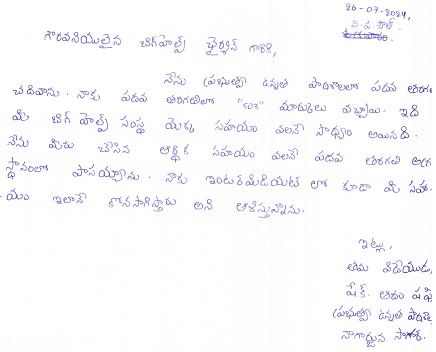 26-07-2024,
వి.పి.సౌత్.
గౌరవనీయులైన బిగ్‌హెల్ప్ ఛైర్మన్ గారికి,
నేను ప్రభుత్వ ఉన్నత పాఠశాలలో పదవ తరగతి
చదివాను. నాకు పదవ తరగతిలో "503" మార్కులు వచ్చాయి. ఇది
మీ బిగ్ హెల్ప్ సంస్థ యొక్క సహాయం వలనే సాధ్యం అయినది.
నేను మీరు చేసిన ఆర్థిక సహాయం వలనే పదవ తరగతి అగ్ర
స్థానంలో పాసయ్యాను. నాకు ఇంటర్మీడియట్ లో కూడా మీ సహా-
యం ఇలానే కొనసాగిస్తారు అని ఆశిస్తున్నాను.
ఇట్లు,
తమ విదేయుడు,
షేక్. ఆదం షఫి
ప్రభుత్వ ఉన్నత పాఠశా
నాగార్జున సాగర్.